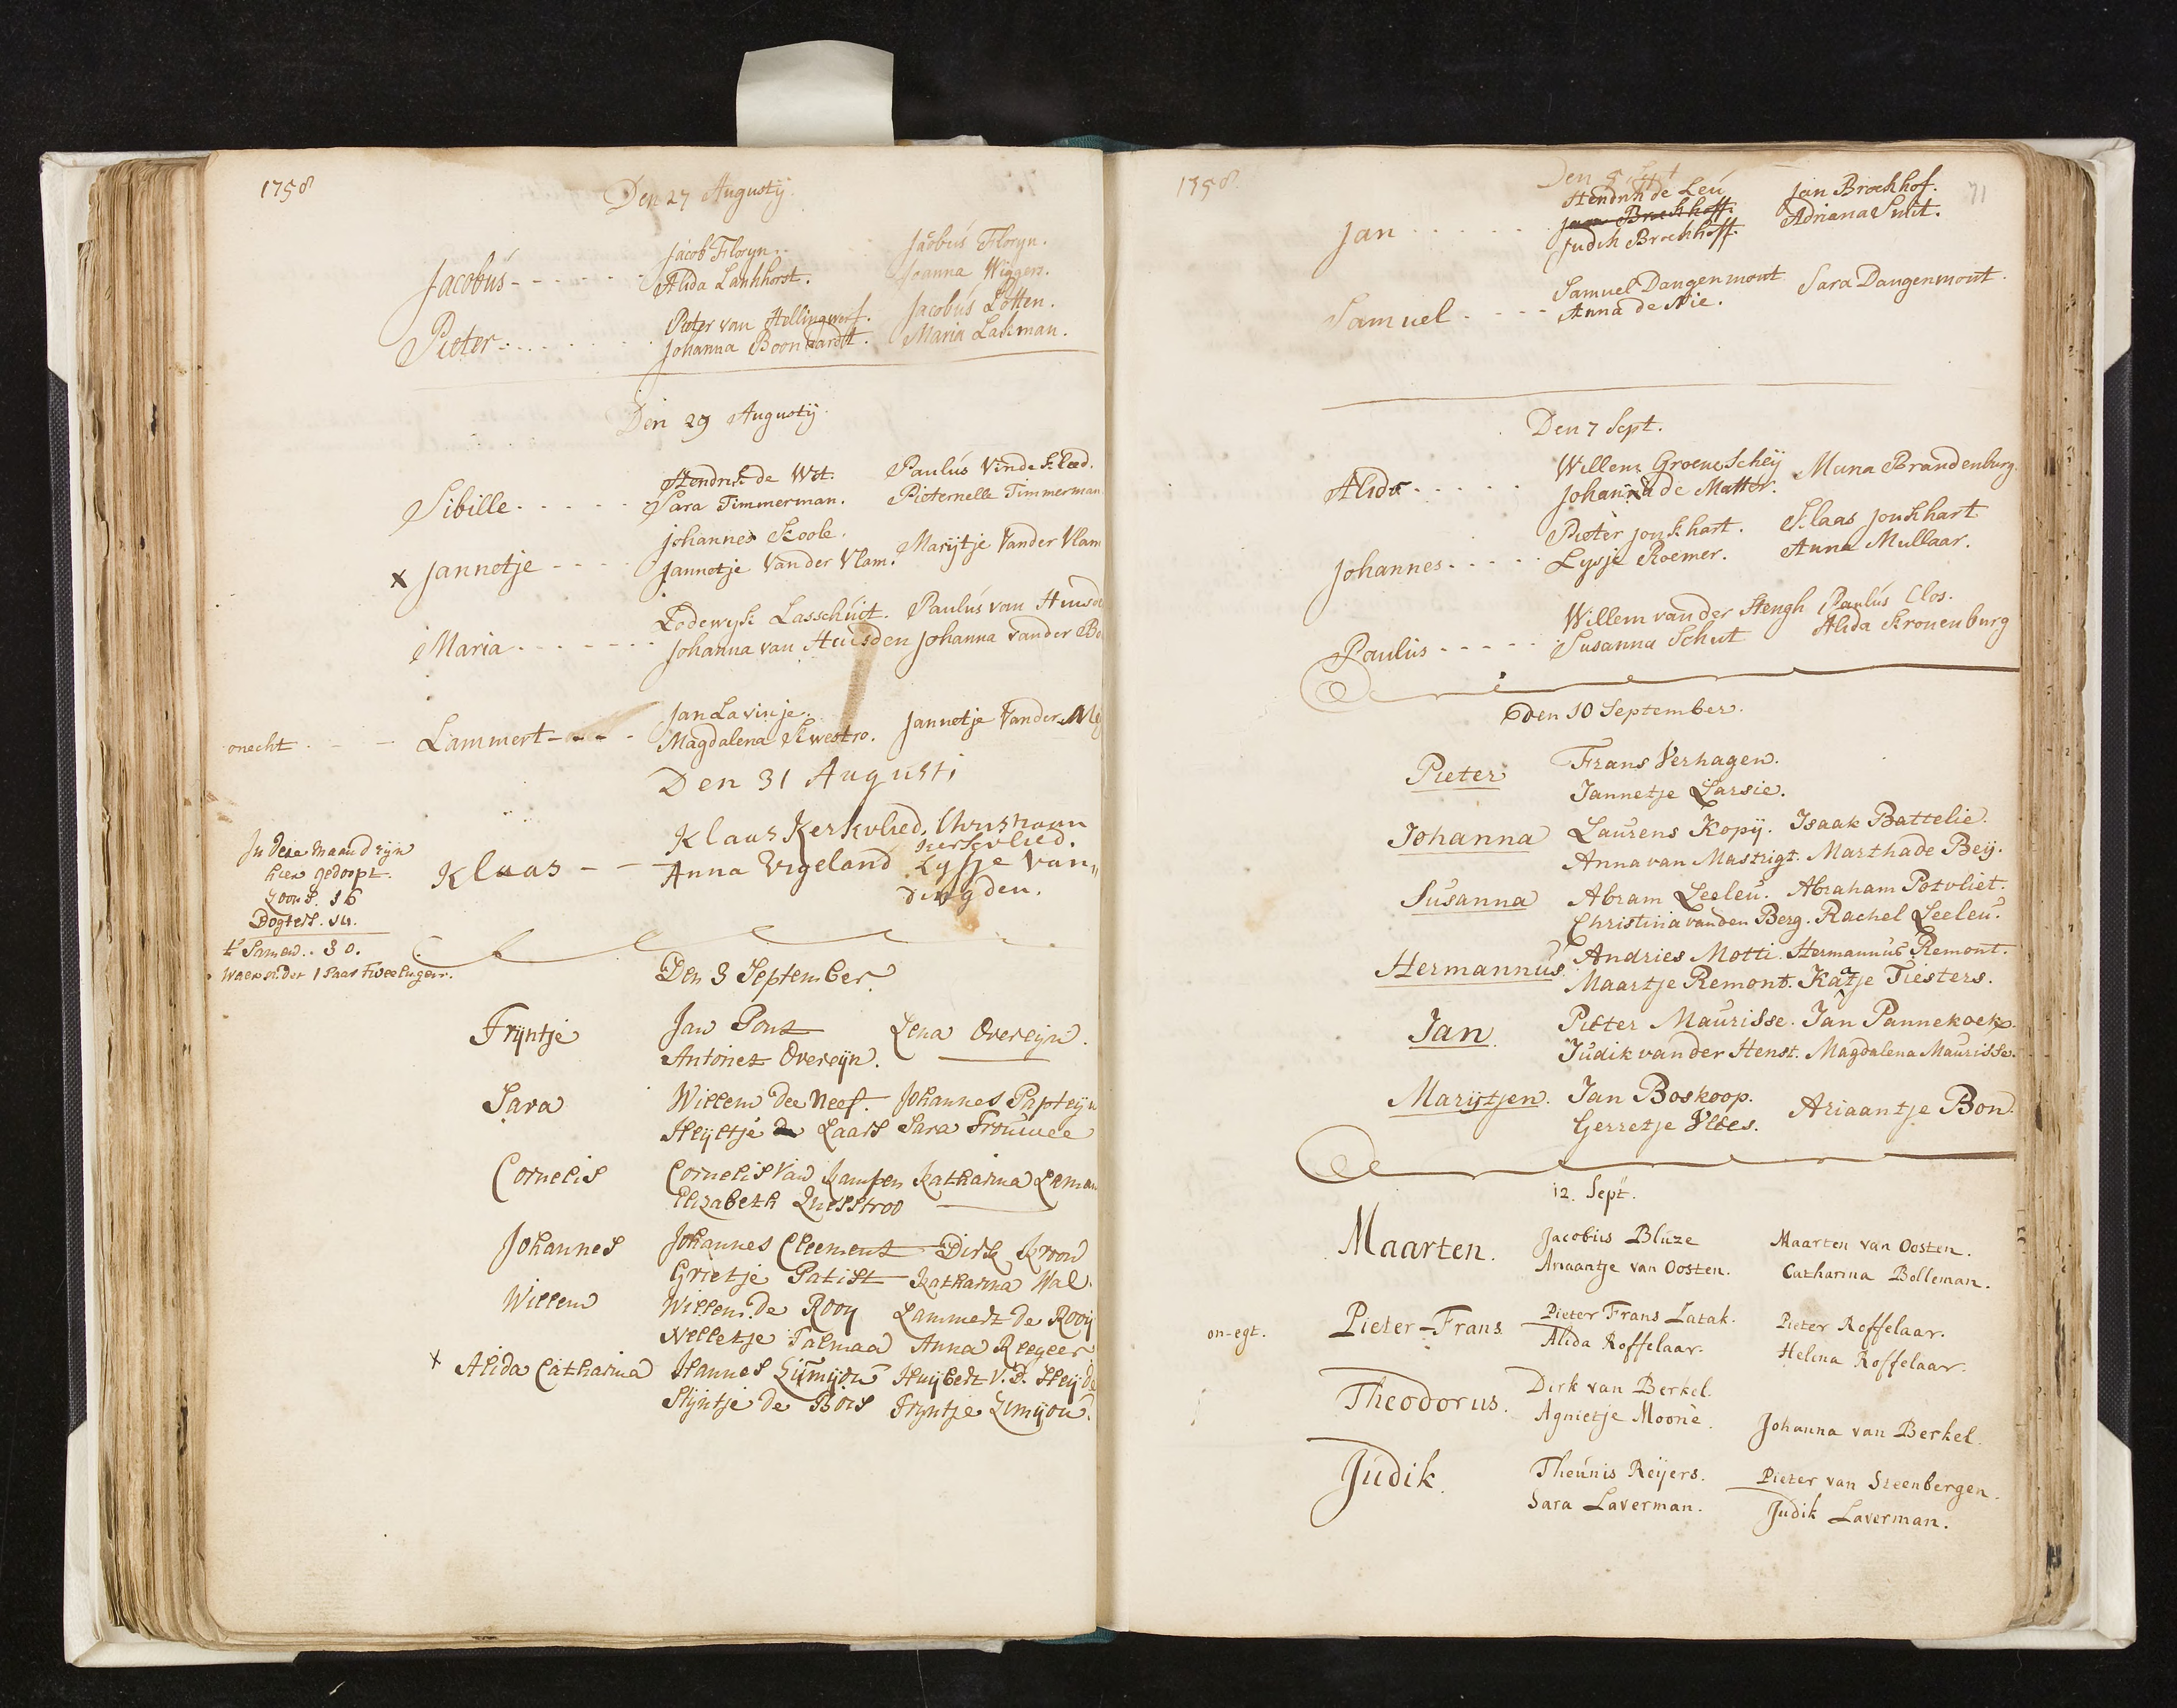 1758
Den 27 Augustij.
Jacobus
Jacob Floryn.
Alida Lankhorst.
Jacobus Floryn.
Joanna Wiggers.
Pieter
Pieter van Hellingwerf.
Johanna Boonhardt.
Jacobus Lotten.
Maria Lakman.
Den 29 Augustij.
Sibille
Hendrik de Wit.
Sara Timmerman.
Paulus Vinde
Pieternella Timmerman
x Jannetje
Johannes Koole.
Jannetje Vander Vlam.
Marijtje Vander Vlam
Maria
Lodewyk Lasschuit.
Johanna van Huisden
Paulus van Huisd
Johanna vander Bo
onecht
Lammert
Jan Lavinje.
Magdalena Kwestro.
Jannetje Vander
Den 31 Augusti
Klaas
Klaas Kerkvlied.
Anna Vrgeland
Christiaan
Kerkvlied.
Lysje van
dingden.
In deze maand zyn
hier gedoopt.
Zoons. 16
Dogters. 14.
t' Samen. 30.
waer onder 1 paar tweelingen.
Den 3 September
Tryntje
Jan Pont
Antonet Overeijn.
Lena Overeijn.
Sara
Willem dee Neef.
Heyltje de Laars
Johannes Papteijn
Sara Trouwee
Cornelis
Cornelis van Kampen
Elizabeth Questroo
Katharina Leman
Johannes
Johannes Cleement
Grietje Patist
Dirk Kroon
Katharina Wal.
Willem
Willem de Rooy
Nelletje Talmaa
Lammert de Rooij
Anna Regeer
x Alida Catharina
Hannes Limijon
Stijntje de Bois
Huijbert v. d. Heijde
Tryntje Limijou.
1758.
71
Den 5 Sept
Jan
Hendrik de Leu
Judik Brockhoff.
Jan Brockhof.
Adriana Smit.
Samuel
Samuel Dangenmont
Anna de Nie.
Sara Dangenmont.
Den 7 Sept.
Alida
Willem Groeneschey
Johanna de Matter.
Muna Brandenburg.
Johannes
Pieter Jonkhart.
Lysje Roemer.
Klaas Jonkhart
Anna Mullaar.
Paulus
Willem vander Stengh
Susanna Schut
Paulus Clos.
Alida Kronenburg
den 10 September.
Pieter
Frans Verhagen.
Jannetje Larsie.
Johanna
Laurens Kopij. Isaak Battelie.
Anna van Mastrigt. Martha de Beij.
Susanna
Abram Leeleu. Abraham Potvliet.
Christina vanden Berg. Rachel Leeleu.
Hermannus.
Andries Motti. Hermannus Remont.
Maartje Remont. Kaatje Tiesters.
Jan.
Pieter Maurisse. Jan Pannekoek.
Judik van der Henst. Magdalena Maurisse.
Marijtjen.
Jan Boskoop.
Gerretje Vlees.
Ariaantje Bon.
12. Sept.
Maarten.
Jacobus Bluze
Ariaantje van Oosten.
Maarten van Oosten.
Catharina Belleman.
on-egt.
Pieter-Frans
Pieter Frans Latak.
Alida Roffelaar.
Pieter Roffelaar.
Helena Roffelaar.
Theodorus.
Dirk van Berkel.
Agnietje Moonè.
Johanna van Berkel.
Judik.
Theunis Reijers.
Sara Laverman.
Pieter van Steenbergen.
Judik Laverman.